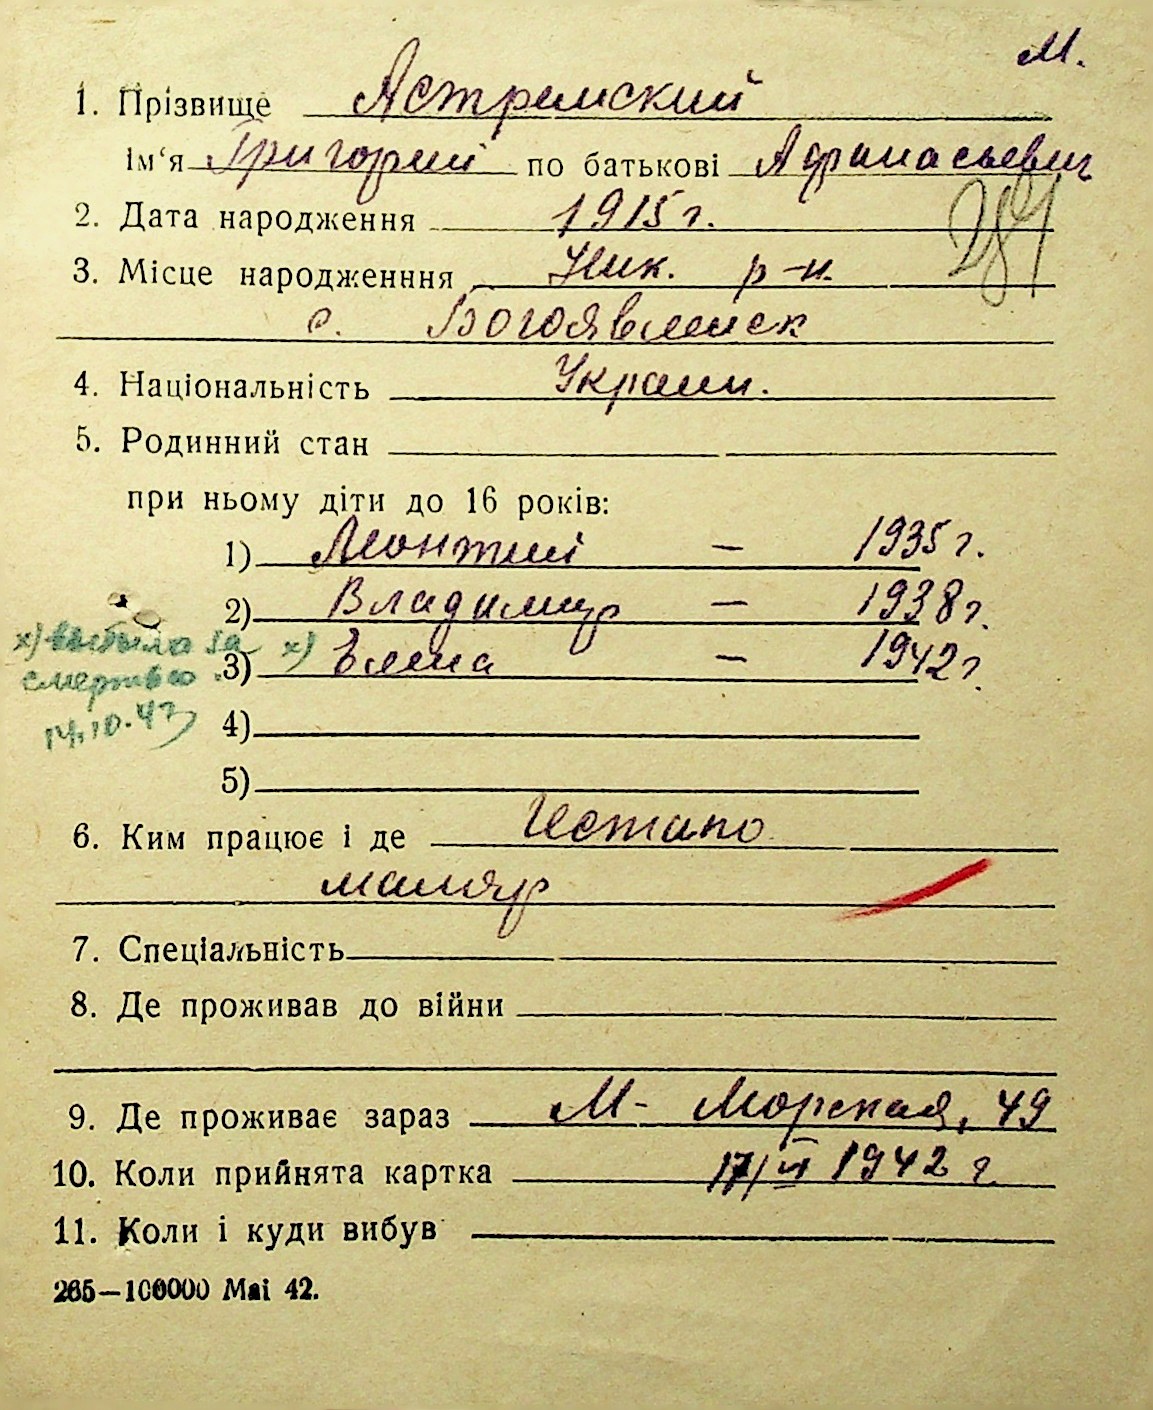 М.
1. Прізвище Астремский
Ім'я Григорий по батькові Афанасьевич
2. Дата народження 1915 г.
3. Місце народженння Ник. р-н.
с. Богоявленск
4. Національність Украин.
5. Родинний стан
при ньому діти до 16 років:
1) Леонтий – 1935 г.
2) Владимир – 1938 г.
х) выбыла за х) 3) Елена – 1942 г.
смертью
14.10.42
4)
5)
6. Ким працює і де Гестапо
маляр
7. Спеціальність
8. Де проживав до війни
9. Де проживає зараз М- Морская, 49
10. Коли прийнята картка 17/VI 1942 г.
11. Коли і куди вибув
265—100000 Mai 42.